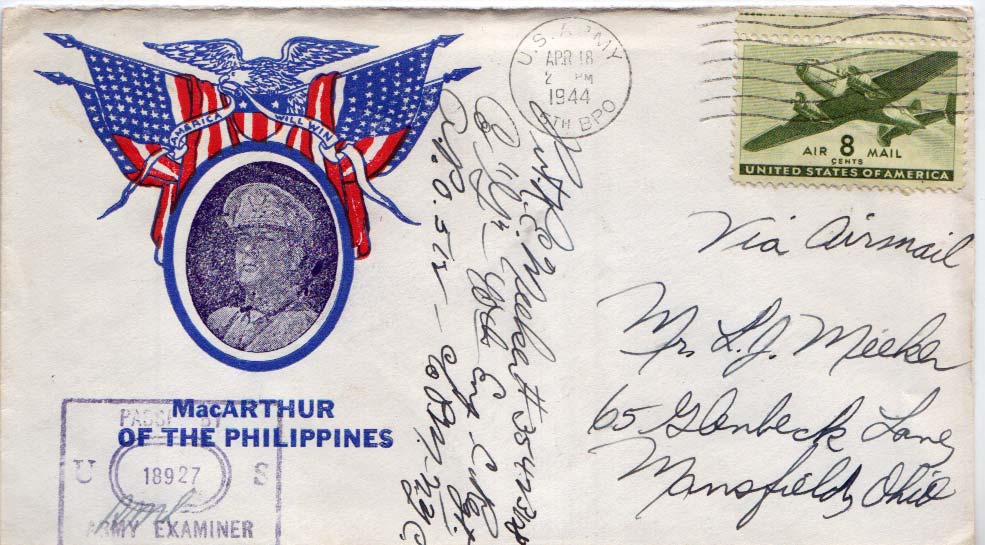 AMERICA WILL WIN
MacARTHUR
OF THE PHILIPPINES
PASSED BY
U 18927 S
ARMY EXAMINER
U.S. ARMY
APR 18
2 PM
1944
5TH BPO
AIR 8 MAIL
CENTS
UNITED STATES OF AMERICA
Via Airmail
Mr. L.J. Meeker
65 Glenbeck Lane
Mansfield, Ohio
Meeker
Co.
A.P.O. 512 -